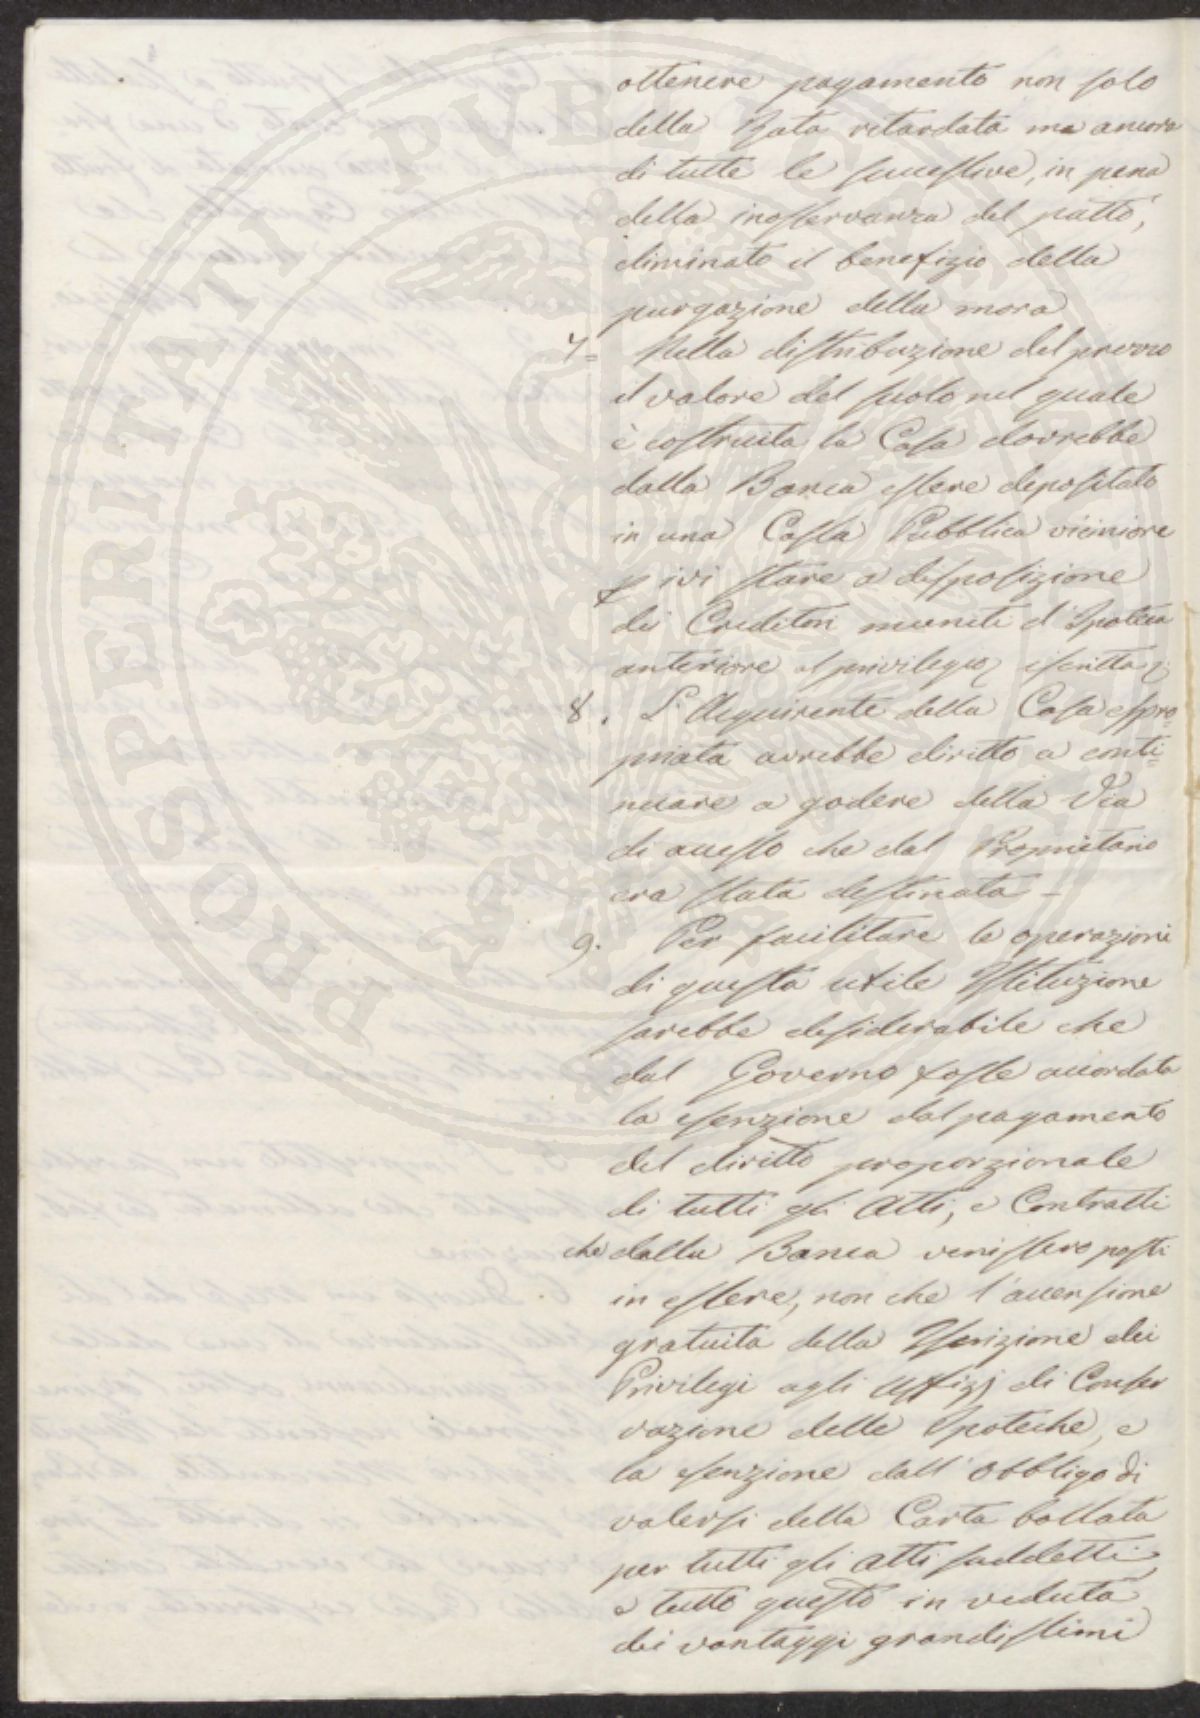 ottenere pagamento non solo
della Rata ritardata ma ancora
di tutte le successive, in pena
della inosservanza del patto,
eliminato il benefizio della
purgazione della mora
7= Nella distribuzione del prezzo
il valore del suolo nel quale
è costruita la Casa dovrebbe
dalla Banca essere depositato
in una Cassa Pubblica viciniore
p ivi stare a disposizione
dei Creditori muniti d'Ipoteca
anteriore al privilegio iscritta
8. L'Acquirente della Casa espro=
priata avrebbe diritto a conti=
nuare a godere della Via
di accesso che dal Proprietario
era stata destinata –
9. Per facilitare le operazioni
di questa utile Istituzione
sarebbe desiderabile che
dal Governo fosse accordata
la esenzione dal pagamento
del diritto proporzionale
di tutti gli Atti, e Contratti
che dalla Banca venissero posti
in essere, non che l'accensione
gratuita della Iscrizione dei
Privilegi agli Uffizj di Conser
vazione delle Ipoteche, e
la esenzione dall'obbligo di
valersi della Carta bollata
per tutti gli atti suddetti,
e tutto questo in veduta
dei vantaggi grandissimi
PROSPERITATI PUBLICAE